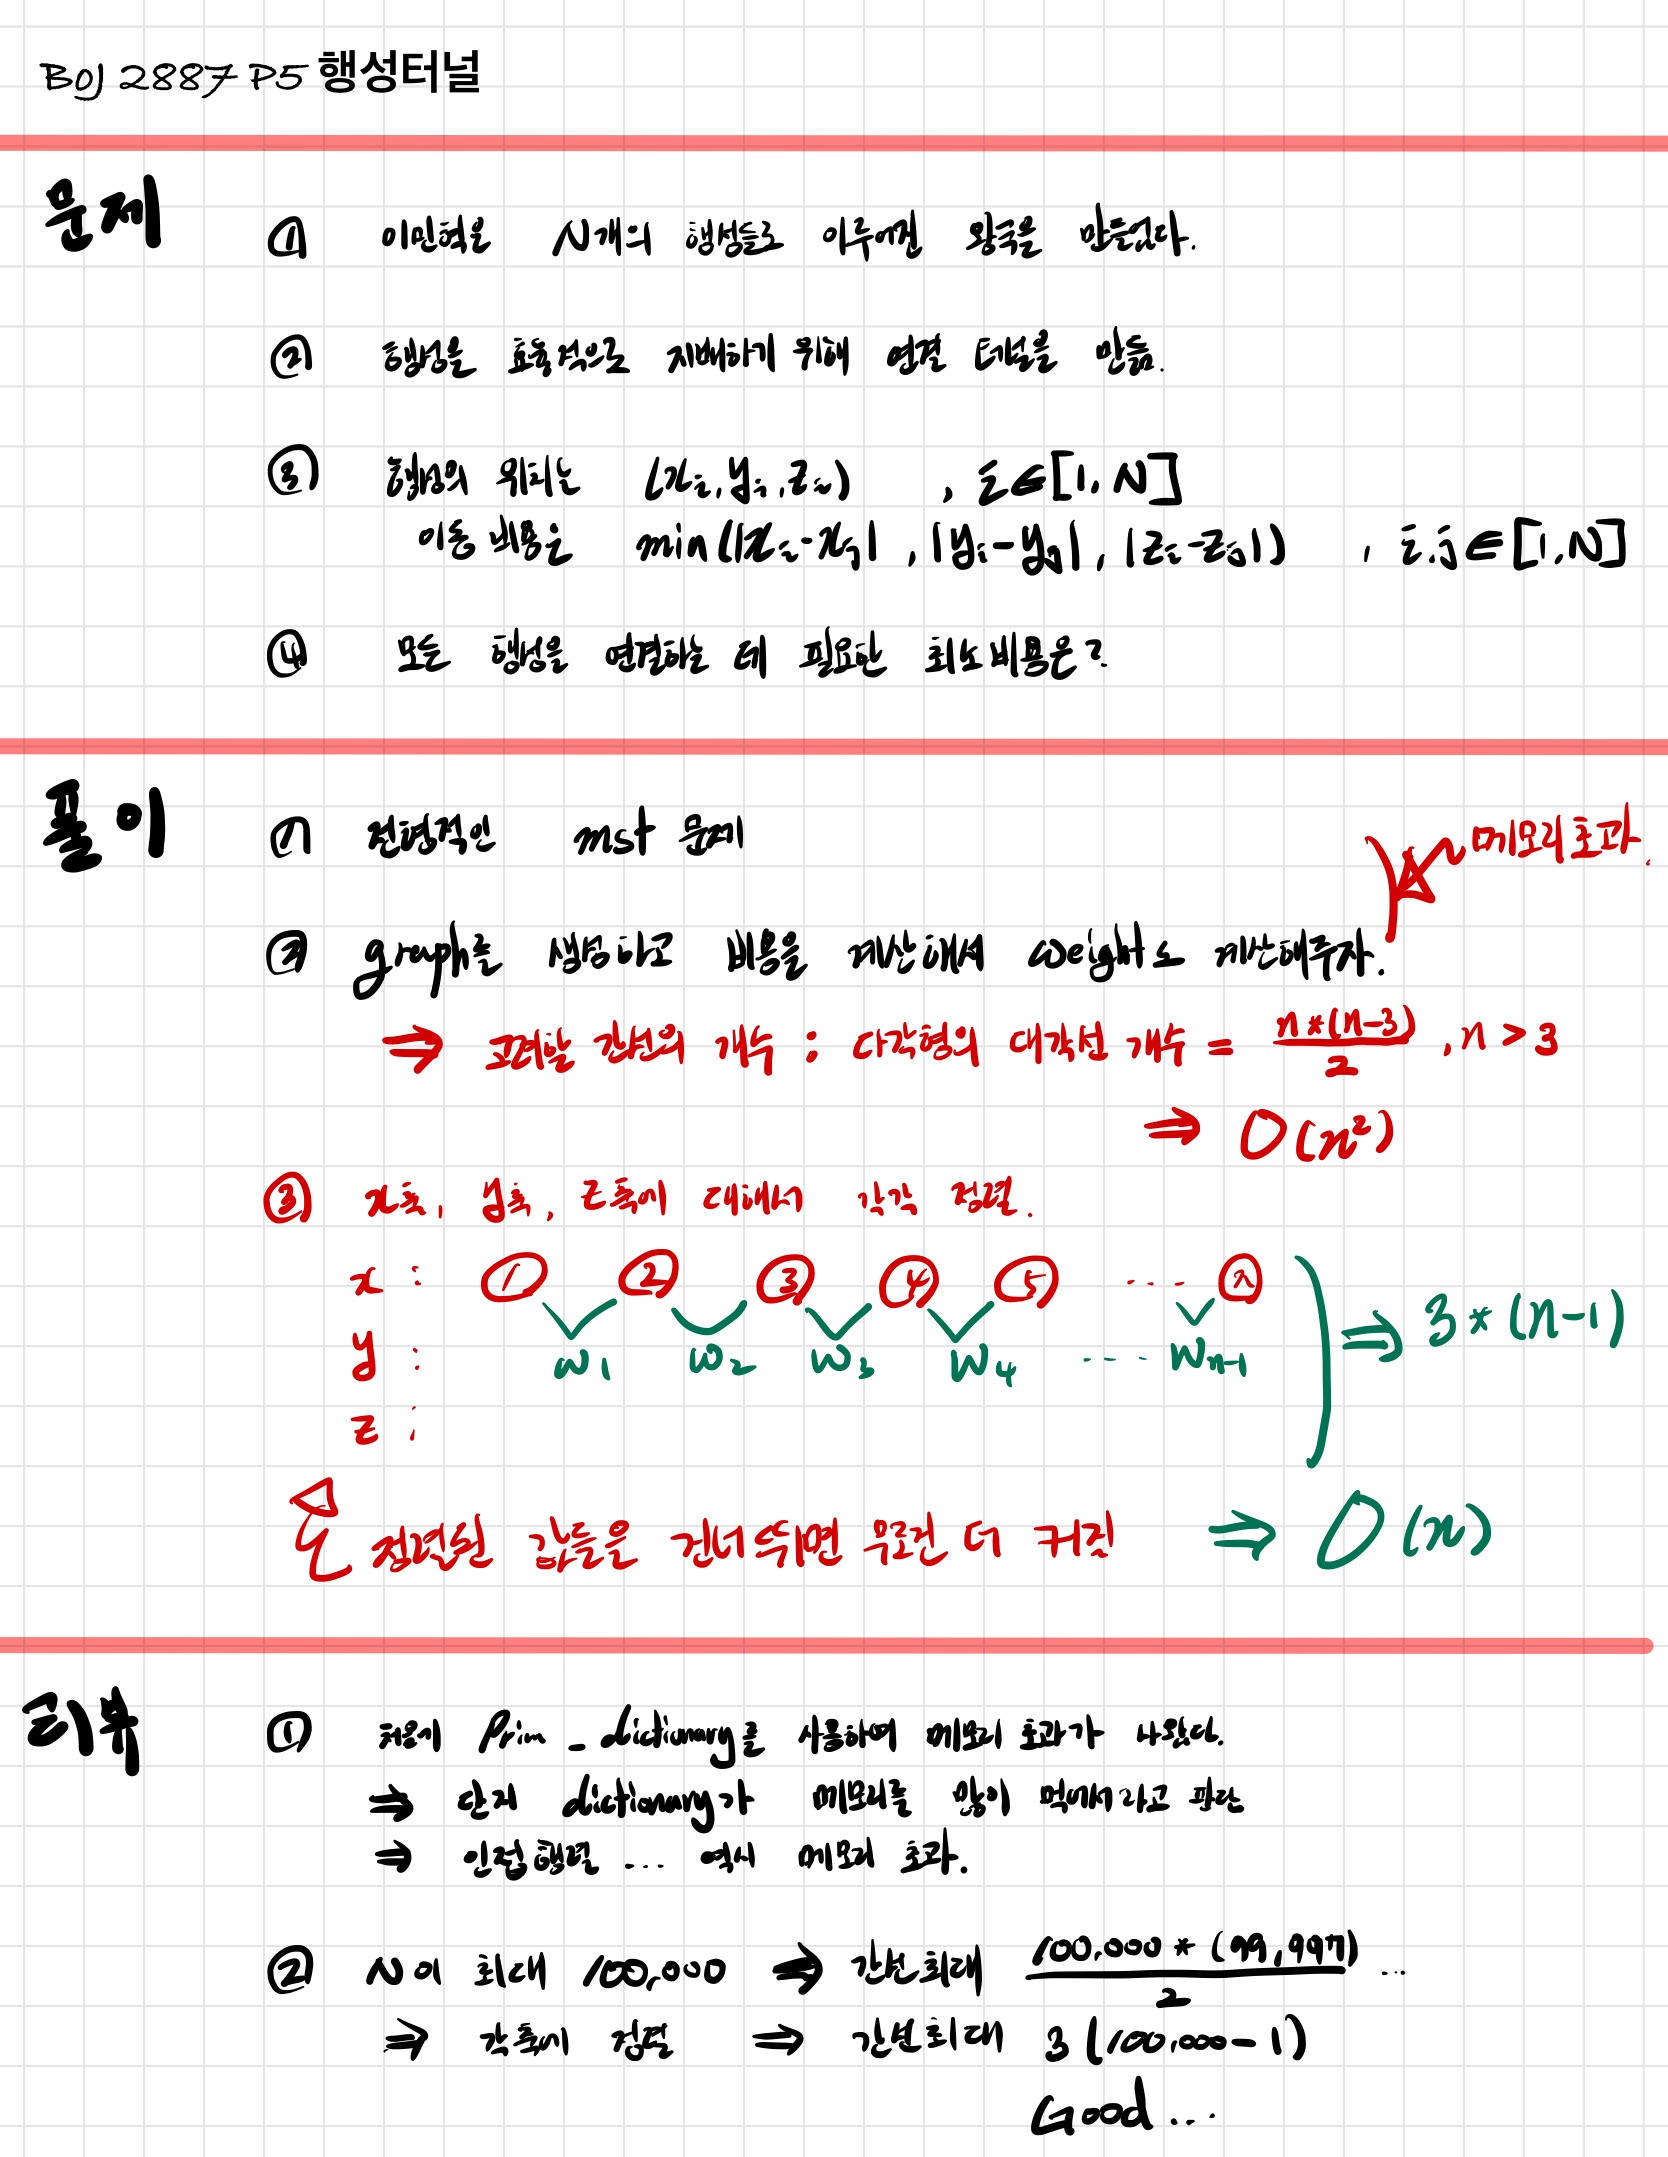 BOJ 2887 P5 행성터널
문제
① 이민혁은 N개의 행성들로 이루어진 왕국을 만들었다.
② 행성을 효율적으로 지배하기 위해 연결 터널을 만듦.
③ 행성의 위치는 (xᵢ, yᵢ, zᵢ) , i∈[1, N]
이동 비용은 min(|xᵢ-xⱼ|, |yᵢ-yⱼ|, |zᵢ-zⱼ|) , i,j∈[1,N]
④ 모든 행성을 연결하는 데 필요한 최소비용은?
풀이
① 전형적인 mst 문제
메모리초과.
② graph를 생성하고 비용을 계산해서 weight도 계산해주자.
⇒ 고려할 간선의 개수 : 다각형의 대각선 개수 = n*(n-3)/2 , n > 3
⇒ O(n²)
③ x축, y축, z축에 대해서 각각 정렬.
x : ① ② ③ ④ ⑤ ... ⓝ
y : w₁ w₂ w₃ w₄ .... wₙ₋₁ ⇒ 3*(n-1)
z :
정렬된 값들을 건너뛰면 무로건 더 커짐 ⇒ O(n)
리뷰
① 처음에 Prim_dictionary를 사용하여 메모리 초과가 나왔다.
⇒ 단지 dictionary가 메모리를 많이 먹어서라고 판단
⇒ 인접행렬 ... 역시 메모리 초과.
② N이 최대 100,000 ⇒ 간선최대 100,000 * (99,997)/2 ...
⇒ 각축에 정렬 ⇒ 간선최대 3(100,000-1)
Good...